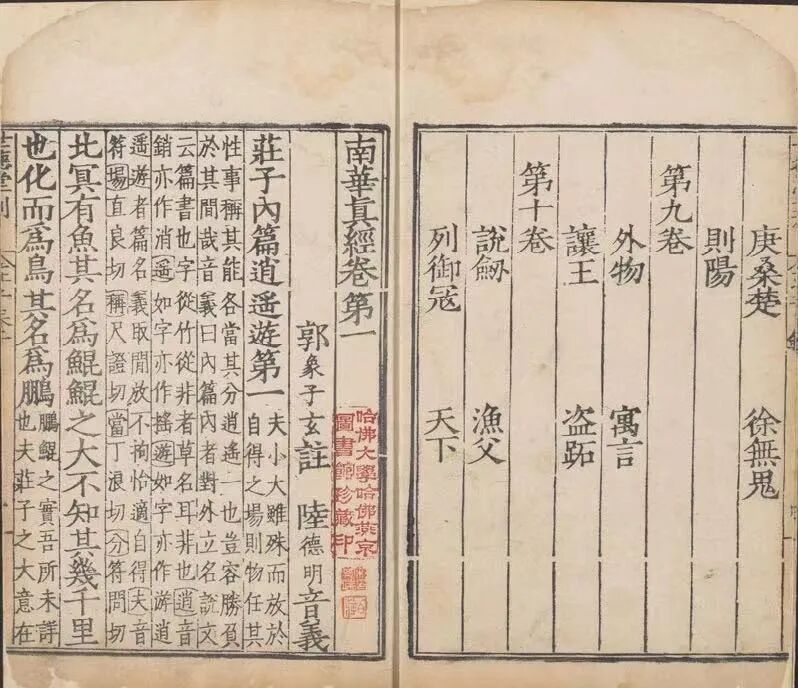 庚桑楚 徐無鬼
則陽
第九卷
外物 寓言
讓王 盗跖
第十卷
說劒 漁父
列御寇 天下
南華眞經卷第一
哈佛大學哈佛燕京
圖書館珍藏印
郭象子玄註 陸德明音義
莊子內篇逍遥遊第一
夫小大雖殊而放於
自得之場則物任其
性事稱其能各當其分逍遥一也豈容勝負
於其間哉音義曰內篇內者對外立名說文
云篇書也字從竹從艸者草名耳非也逍音
銷亦作消遥如字亦作搖遊如字亦作游逍
遥遊者篇名義取閒放不拘怡適自得夫音
符場直良切稱尺證切當丁浪切分符問切
北冥有魚其名爲鯤鯤之大不知其幾千里
也化而爲鳥其名爲鵬
鵬鯤之實吾所未詳
也夫莊子之大意在